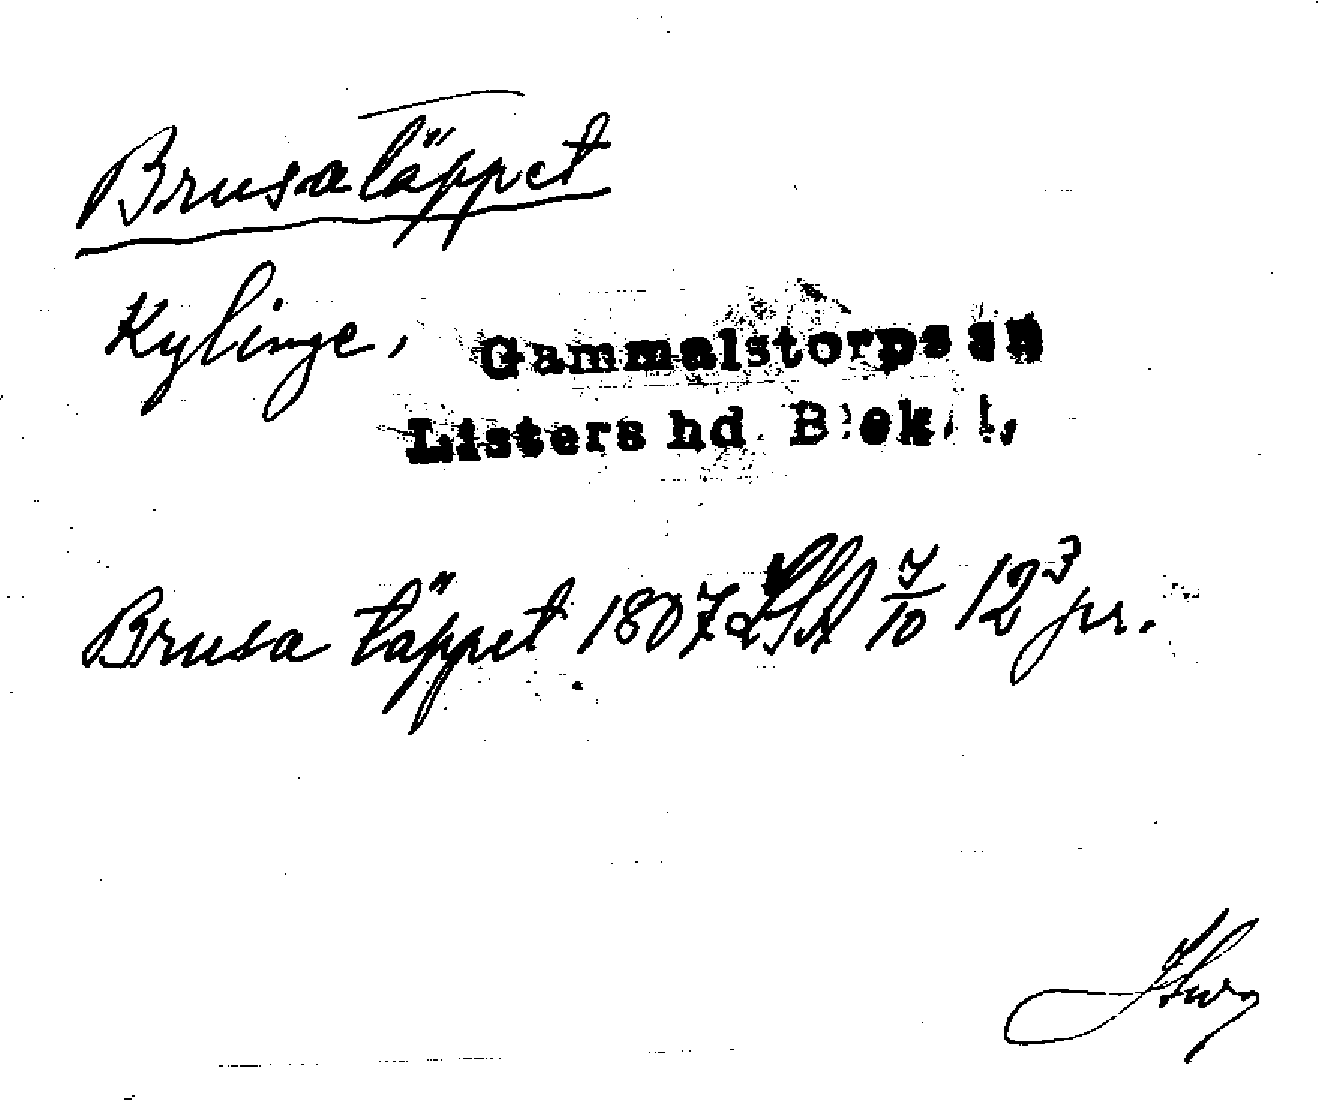 Brusatäppet
Kylinge,
Gammalstorps sn
Listers hd Blek. l.
Brusa täppet 1807 LSA 7/10 12 pr.